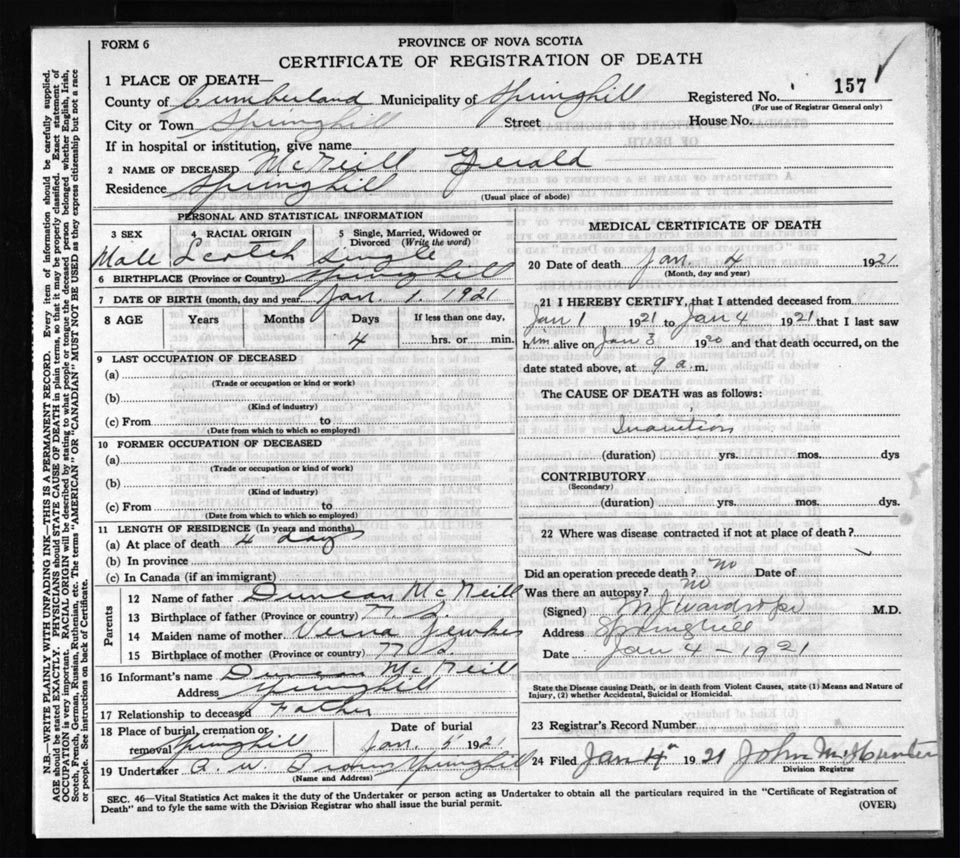 FORM 6
PROVINCE OF NOVA SCOTIA
CERTIFICATE OF REGISTRATION OF DEATH
1 PLACE OF DEATH—
County of Cumberland Municipality of Springhill Registered No. 157
(For use of Registrar General only)
City or Town Springhill Street House No.
If in hospital or institution, give name
2 NAME OF DECEASED McNeill Gerald
Residence Springhill
(Usual place of abode)
PERSONAL AND STATISTICAL INFORMATION
3 SEX 4 RACIAL ORIGIN 5 Single, Married, Widowed or Divorced (Write the word)
Male Scotch Single
6 BIRTHPLACE (Province or Country) Springhill
7 DATE OF BIRTH (month, day and year) Jan. 1. 1921
8 AGE Years Months Days If less than one day,
4 hrs. or min.
9 LAST OCCUPATION OF DECEASED
(a)
(Trade or occupation or kind or work)
(b)
(Kind of industry)
(c) From to
(Date from which to which so employed)
10 FORMER OCCUPATION OF DECEASED
(a)
(Trade or occupation or kind of work)
(b)
(Kind of industry)
(c) From to
(Date from which to which so employed)
11 LENGTH OF RESIDENCE (In years and months)
(a) At place of death 4 days
(b) In province
(c) In Canada (if an immigrant)
Parents
12 Name of father Duncan McNeill
13 Birthplace of father (Province or country) N.S.
14 Maiden name of mother Verna
15 Birthplace of mother (Province or country) N.S.
16 Informant's name Duncan McNeill
Address Springhill
17 Relationship to deceased Father
18 Place of burial, cremation or removal Springhill
Date of burial Jan. 5 1921
19 Undertaker A. W. Brown Springhill
(Name and Address)
MEDICAL CERTIFICATE OF DEATH
20 Date of death Jan. 4 1921
(Month, day and year)
21 I HEREBY CERTIFY, that I attended deceased from
Jan 1 1921 to Jan 4 1921 that I last saw
him alive on Jan 3 1920 and that death occurred, on the
date stated above, at 9 a.m.
The CAUSE OF DEATH was as follows:
Inanition
(duration) yrs. mos. dys
CONTRIBUTORY
(Secondary)
(duration) yrs. mos. dys.
22 Where was disease contracted if not at place of death?
Did an operation precede death? no Date of
Was there an autopsy? no
(Signed) Wardrope M.D.
Address Springhill
Date Jan 4 - 1921
State the Disease causing Death, or in death from Violent Causes, state (1) Means and Nature of
Injury, (2) whether Accidental, Suicidal or Homicidal.
23 Registrar's Record Number
24 Filed Jan 4 1921 John
Division Registrar
SEC. 46—Vital Statistics Act makes it the duty of the Undertaker or person acting as Undertaker to obtain all the particulars required in the "Certificate of Registration of
Death" and to fyle the same with the Division Registrar who shall issue the burial permit.
(OVER)
N.B.—WRITE PLAINLY WITH UNFADING INK—THIS IS A PERMANENT RECORD. Every item of information should be carefully supplied.
AGE should be stated EXACTLY. PHYSICIANS should STATE CAUSE OF DEATH in plain terms, so that it may be properly classified. Exact statement of
OCCUPATION is very important. RACIAL ORIGIN will be described by stating to what people or tongue the deceased person belonged whether English, Irish,
Scotch, French, German, Russian, Ruthenian, etc. The terms "AMERICAN" OR "CANADIAN" MUST NOT BE USED as they express citizenship but not a race
or people. See instructions on back of Certificate.